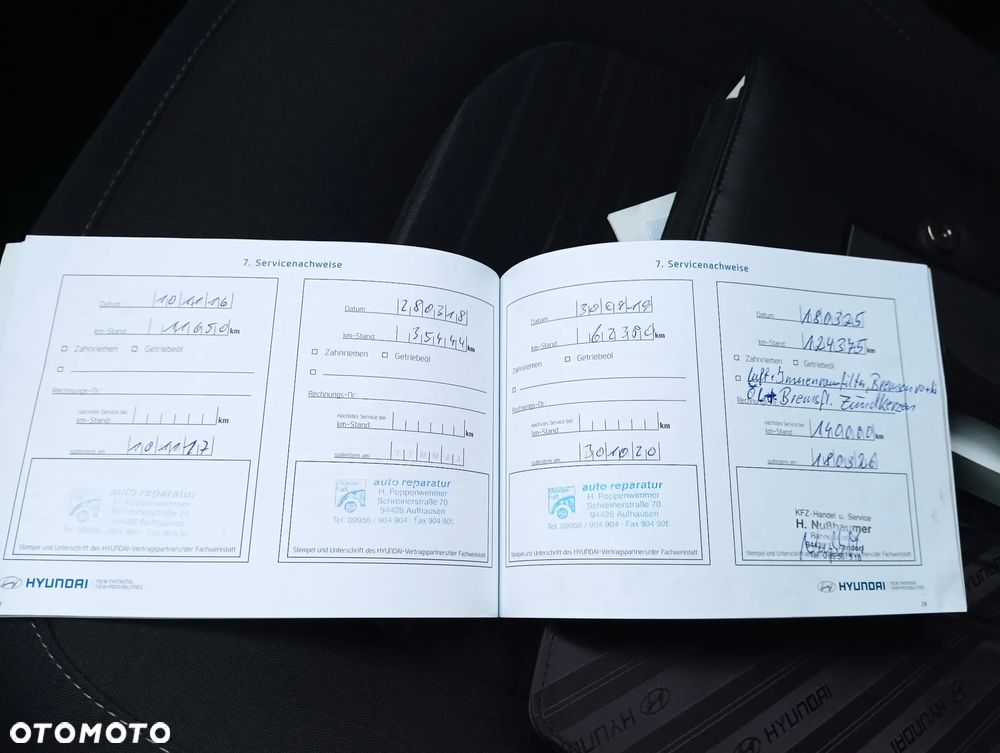 7. Servicenachweise
Datum: 10 11 16
km-Stand: 11650 km
Zahnriemen Getriebeöl
Rechnungs-Nr.:
nächstes Service bei
km-Stand: km
spätestens am 10 11 17
Stempel und Unterschrift des HYUNDAI-Vertragspartners/der Fachwerkstatt
HYUNDAI NEW THINKING. NEW POSSIBILITIES.
Datum: 28 03 18
km-Stand: 35444 km
Zahnriemen Getriebeöl
Rechnungs-Nr.:
nächstes Service bei
km-Stand: km
spätestens am T T M M J J
auto reparatur
H. Poppenwimmer
Schreinerstraße 70
94428 Aufhausen
Tel. 09956 / 904 904 · Fax 904 905
Stempel und Unterschrift des HYUNDAI-Vertragspartners/der Fachwerkstatt
7. Servicenachweise
Datum:
km-Stand: km
Zahnriemen Getriebeöl
Rechnungs-Nr.:
nächstes Service bei
km-Stand: km
spätestens am 30 10 20
auto reparatur
H. Poppenwimmer
Schreinerstraße 70
94428 Aufhausen
Tel. 09956 / 904 904 · Fax 904 905
Stempel und Unterschrift des HYUNDAI-Vertragspartners/der Fachwerkstatt
Datum: 18 03 25
km-Stand: 124375 km
Zahnriemen Getriebeöl
Luft+Innenraumfilter, Bremsen
Öl+ Bremsfl. Zündkerzen
nächstes Service bei
km-Stand: 140000 km
spätestens am 18 03 26
KFZ-Handel u. Service
H. Nußbaumer
HYUNDAI NEW THINKING. NEW POSSIBILITIES.
29
HYUNDAI
HYUNDAI
HYUNDAI
OTOMOTO